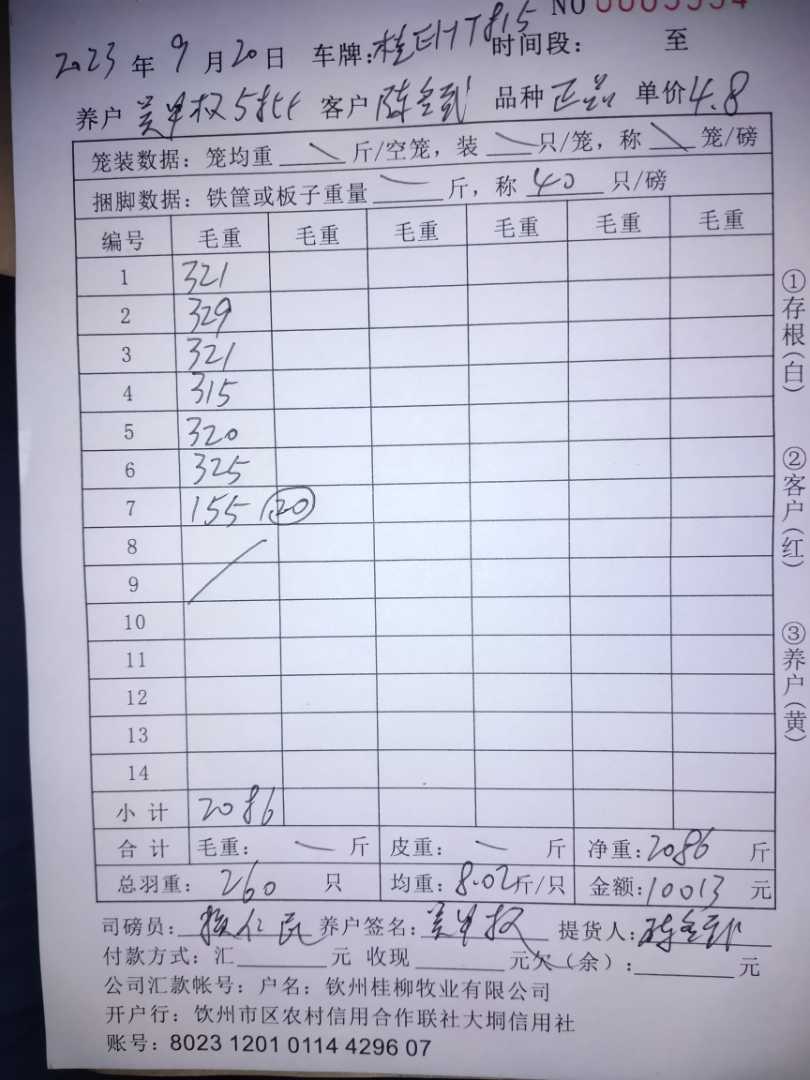 NO 0005594
2023年9月20日 车牌:桂EHT815 时间段: 至
养户 吴甲权5批 客户 陈 品种 正品 单价4.8
笼装数据:笼均重 斤/空笼,装 只/笼,称 笼/磅
捆脚数据:铁筐或板子重量 斤,称 40 只/磅
编号 毛重 毛重 毛重 毛重 毛重 毛重
1 321
2 329
3 321
4 315
5 320
6 325
7 155 20
8
9
10
11
12
13
14
小计 2086
合计 毛重: 斤 皮重: 斤 净重:2086 斤
总羽重: 260 只 均重:8.02斤/只 金额:10013 元
司磅员: 养户签名:吴甲权 提货人:陈
付款方式:汇 元 收现 元欠(余): 元
公司汇款帐号:户名:钦州桂柳牧业有限公司
开户行:钦州市区农村信用合作联社大垌信用社
账号:8023 1201 0114 4296 07
①存根(白)
②客户(红)
③养户(黄)